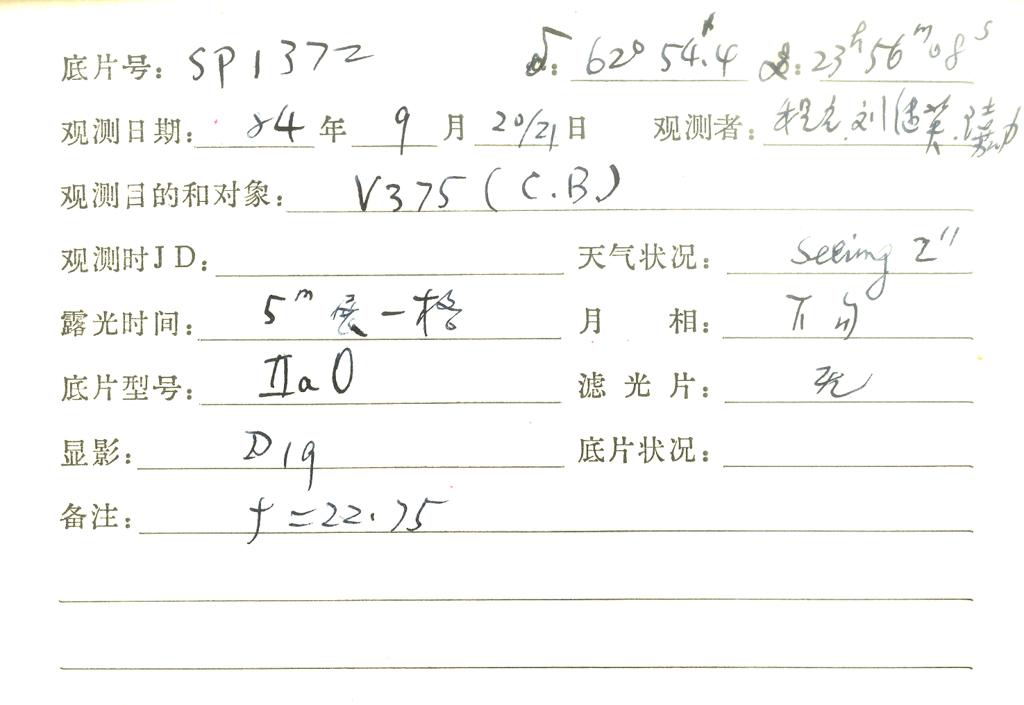 底片号: SP1372 δ: 62° 54.4 α: 23h56m08s
观测日期: 84 年 9 月 20/21 日 观测者: 程 刘
观测目的和对象: V375 (C.B.)
观测时JD: 天气状况: Seeing 2"
露光时间: 5m 展一格 月 相: 下旬
底片型号: IIaO 滤光片: 无
显影: D19 底片状况:
备注: f=22.75